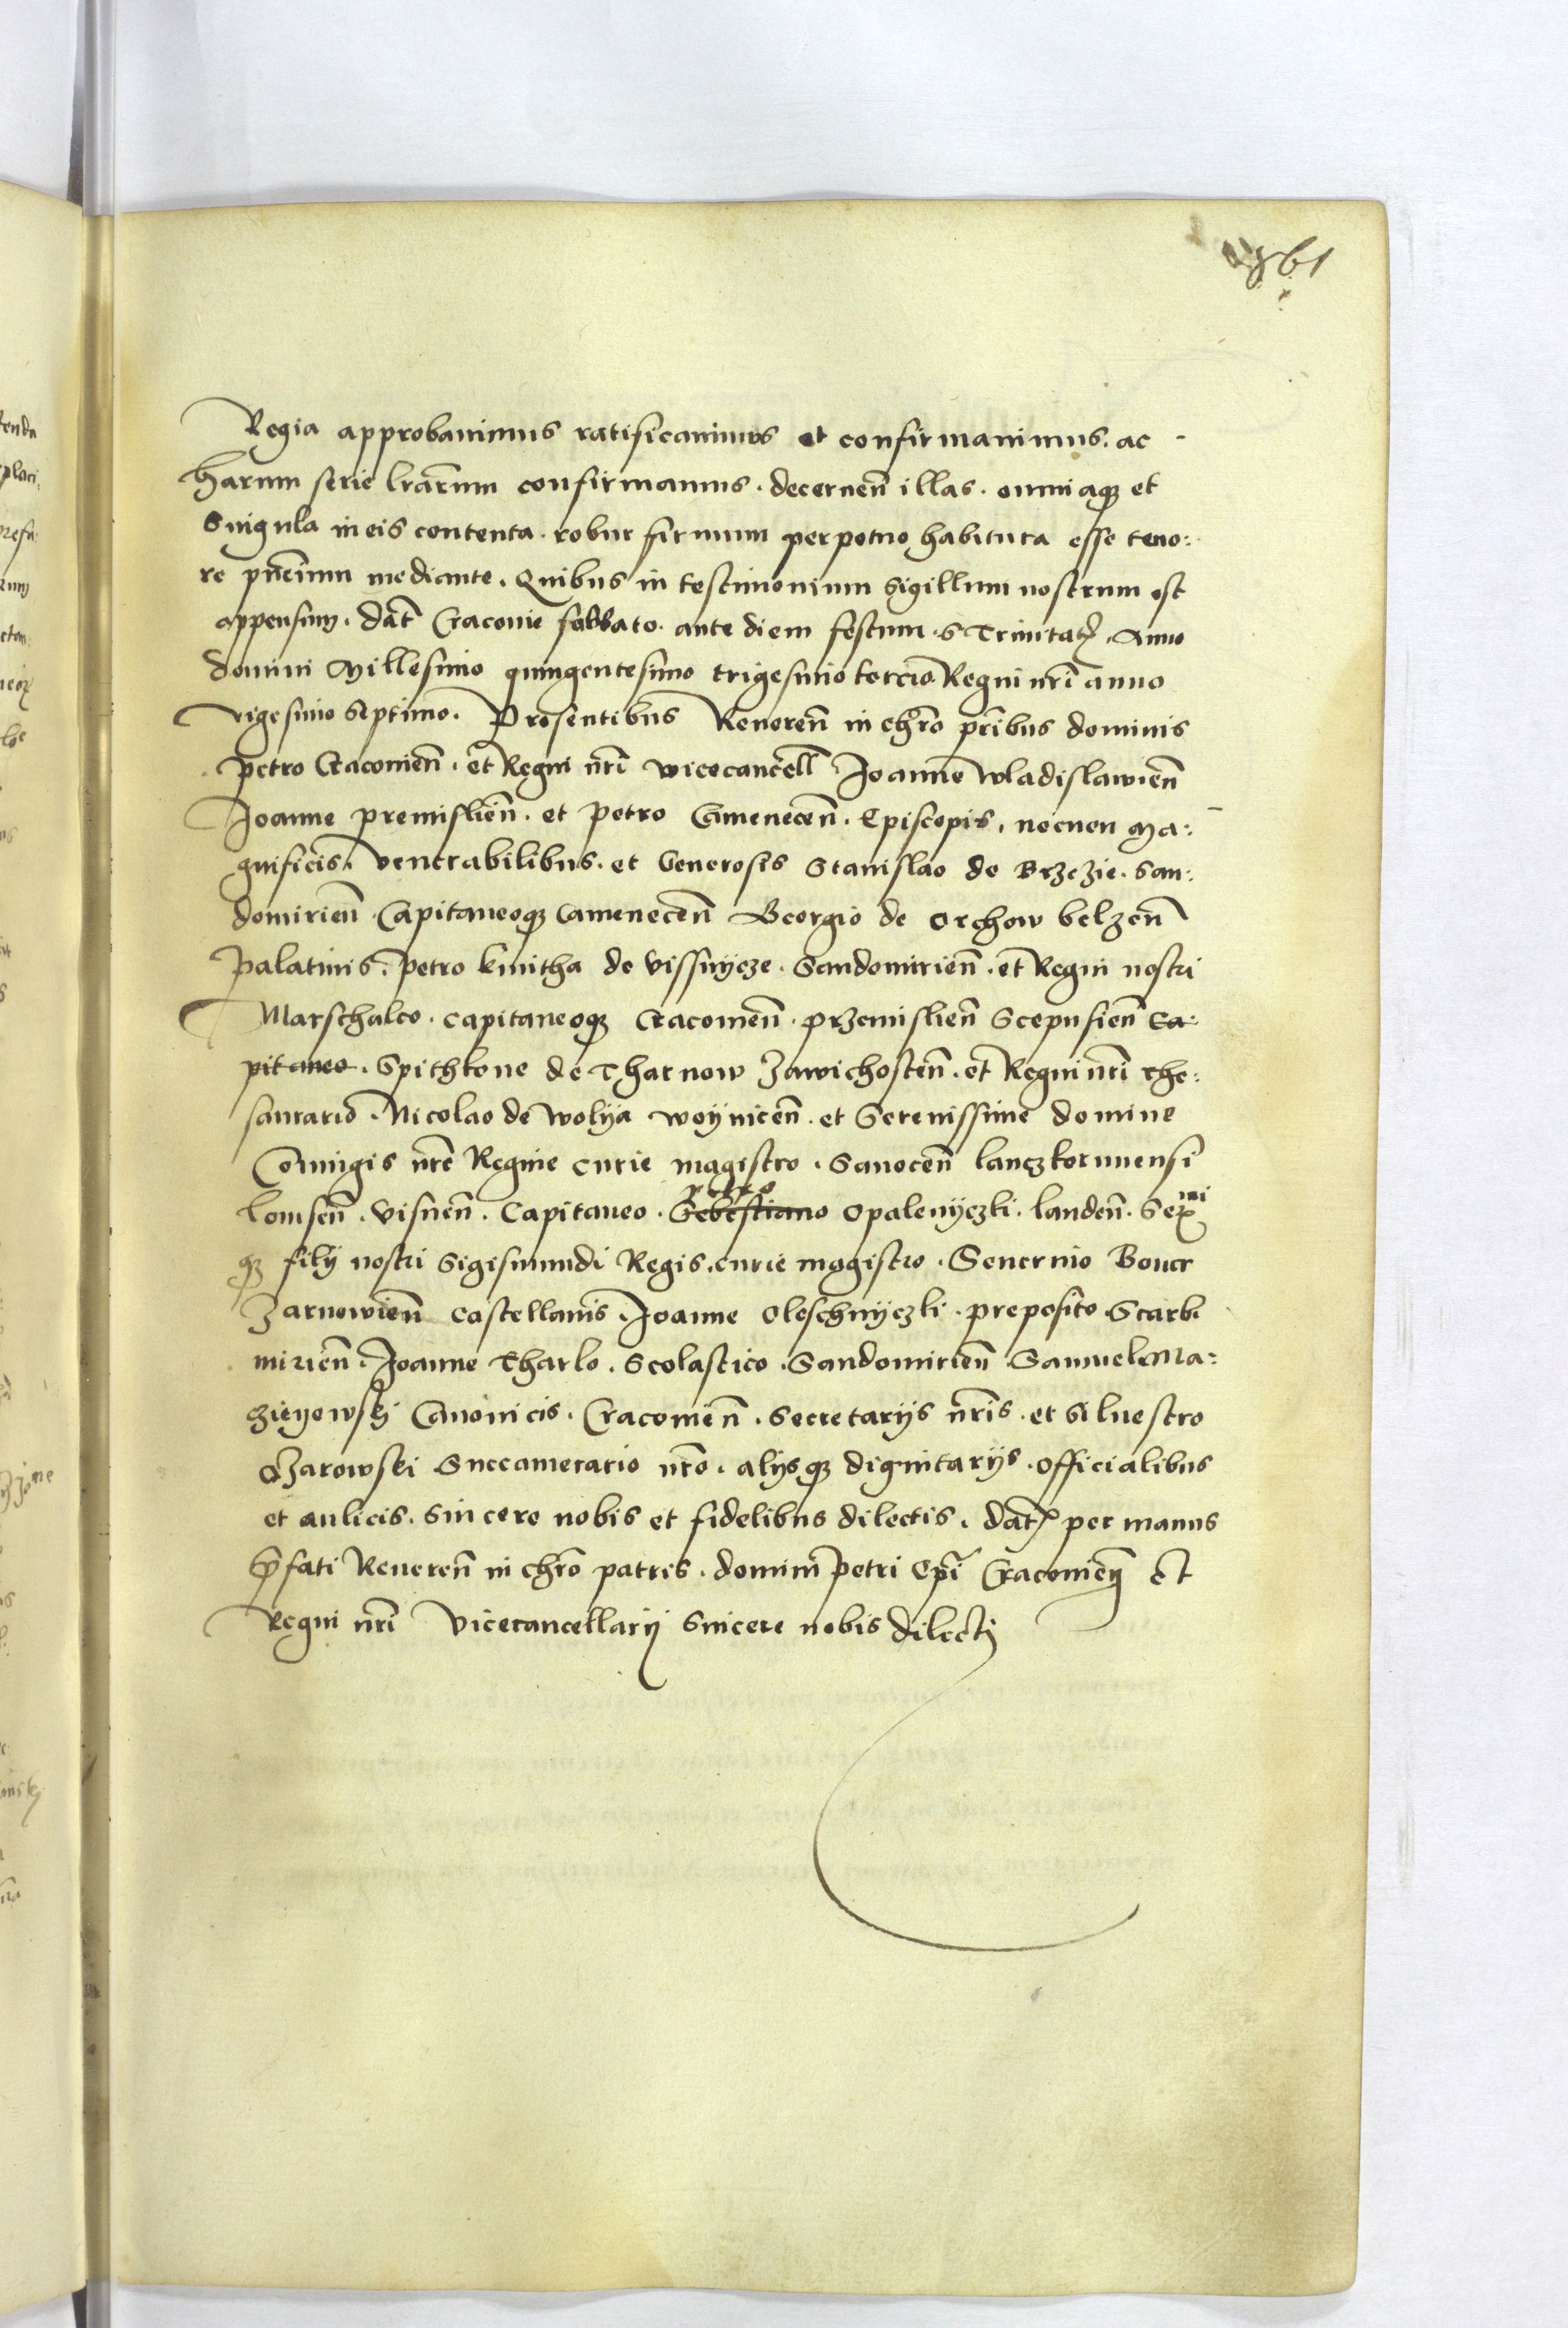 Regia approbavimus ratificavimus et confirmavimus. ac -
harum serie lrārum confirmamus. decernen̄ illas. omniaqꝫ et
Singula in eis contenta. robur firmum perpetuo habitura esse teno:
re pn̄cium mediante. Quibus in testimonium Sigillum nostrum est
appensum. dat̄ Cracovie sabbato. ante diem festum. S Trinitatꝭ. Anno
domini Millesimo quingentesimo trigesimo tercio Regni nr̄i anno
vigesimo Septimo. Presentibus Reveren̄ in chr̄o pr̄ibus dominis
petro Cracovien̄. et Regni nr̄i vicecancell̄ Joanne wladislawien̄
Joanne premislien̄. et petro Camenecen̄. Episcopis. necnon Ma:
gnificis. Venerabilibus. et Generosis Stanislao de Brzezie. San:
domirien̄ Capitaneoqꝫ Camenecen̄ Georgio de Orchow belzen̄
palatinis. petro kmitha de vissnycze. Sandomirien̄. et Regni nostri
Marschalco. capitaneoqꝫ Cracovien̄. przemislien̄ Scepusien̄ Ca:
pitaneo. Spithkone de Tharnow Zawichosten̄. et Regni nr̄i the:
saurario. Nicolao de wolya woynicen̄. et Serenissime domine
Coniugis nr̄e Regine curie magistro. Sanocen̄ lanczkorunensi
lomsen̄. visnen̄. Capitaneo. Sebestiano petro Opalenyczki. landen̄. Seꝝmi
qꝫ filij nostri Sigismundi Regis. curie magistro. Severino Boner
Zarnowien̄ castellanis. Joanne Oleschnyczki. preposito Scarbi
mirien̄. Joanne Tharlo. Scolastico. Sandomirien̄ Samuele Ma:
czieyowskj Canonicis. Cracovien̄. Secretarijs nr̄is. et Silvestro
Ozarowski Succamerario nr̄o. alijsqꝫ dignitarijs. officialibus
et aulicis. sincere nobis et fidelibus dilectis. datꝭ per manus
p̄fati Reveren̄ in chr̄o patris. domini petri Ep̄i Cracovien̄ Et
Regni nr̄i Vicecancellarij Sincere nobis dilectj